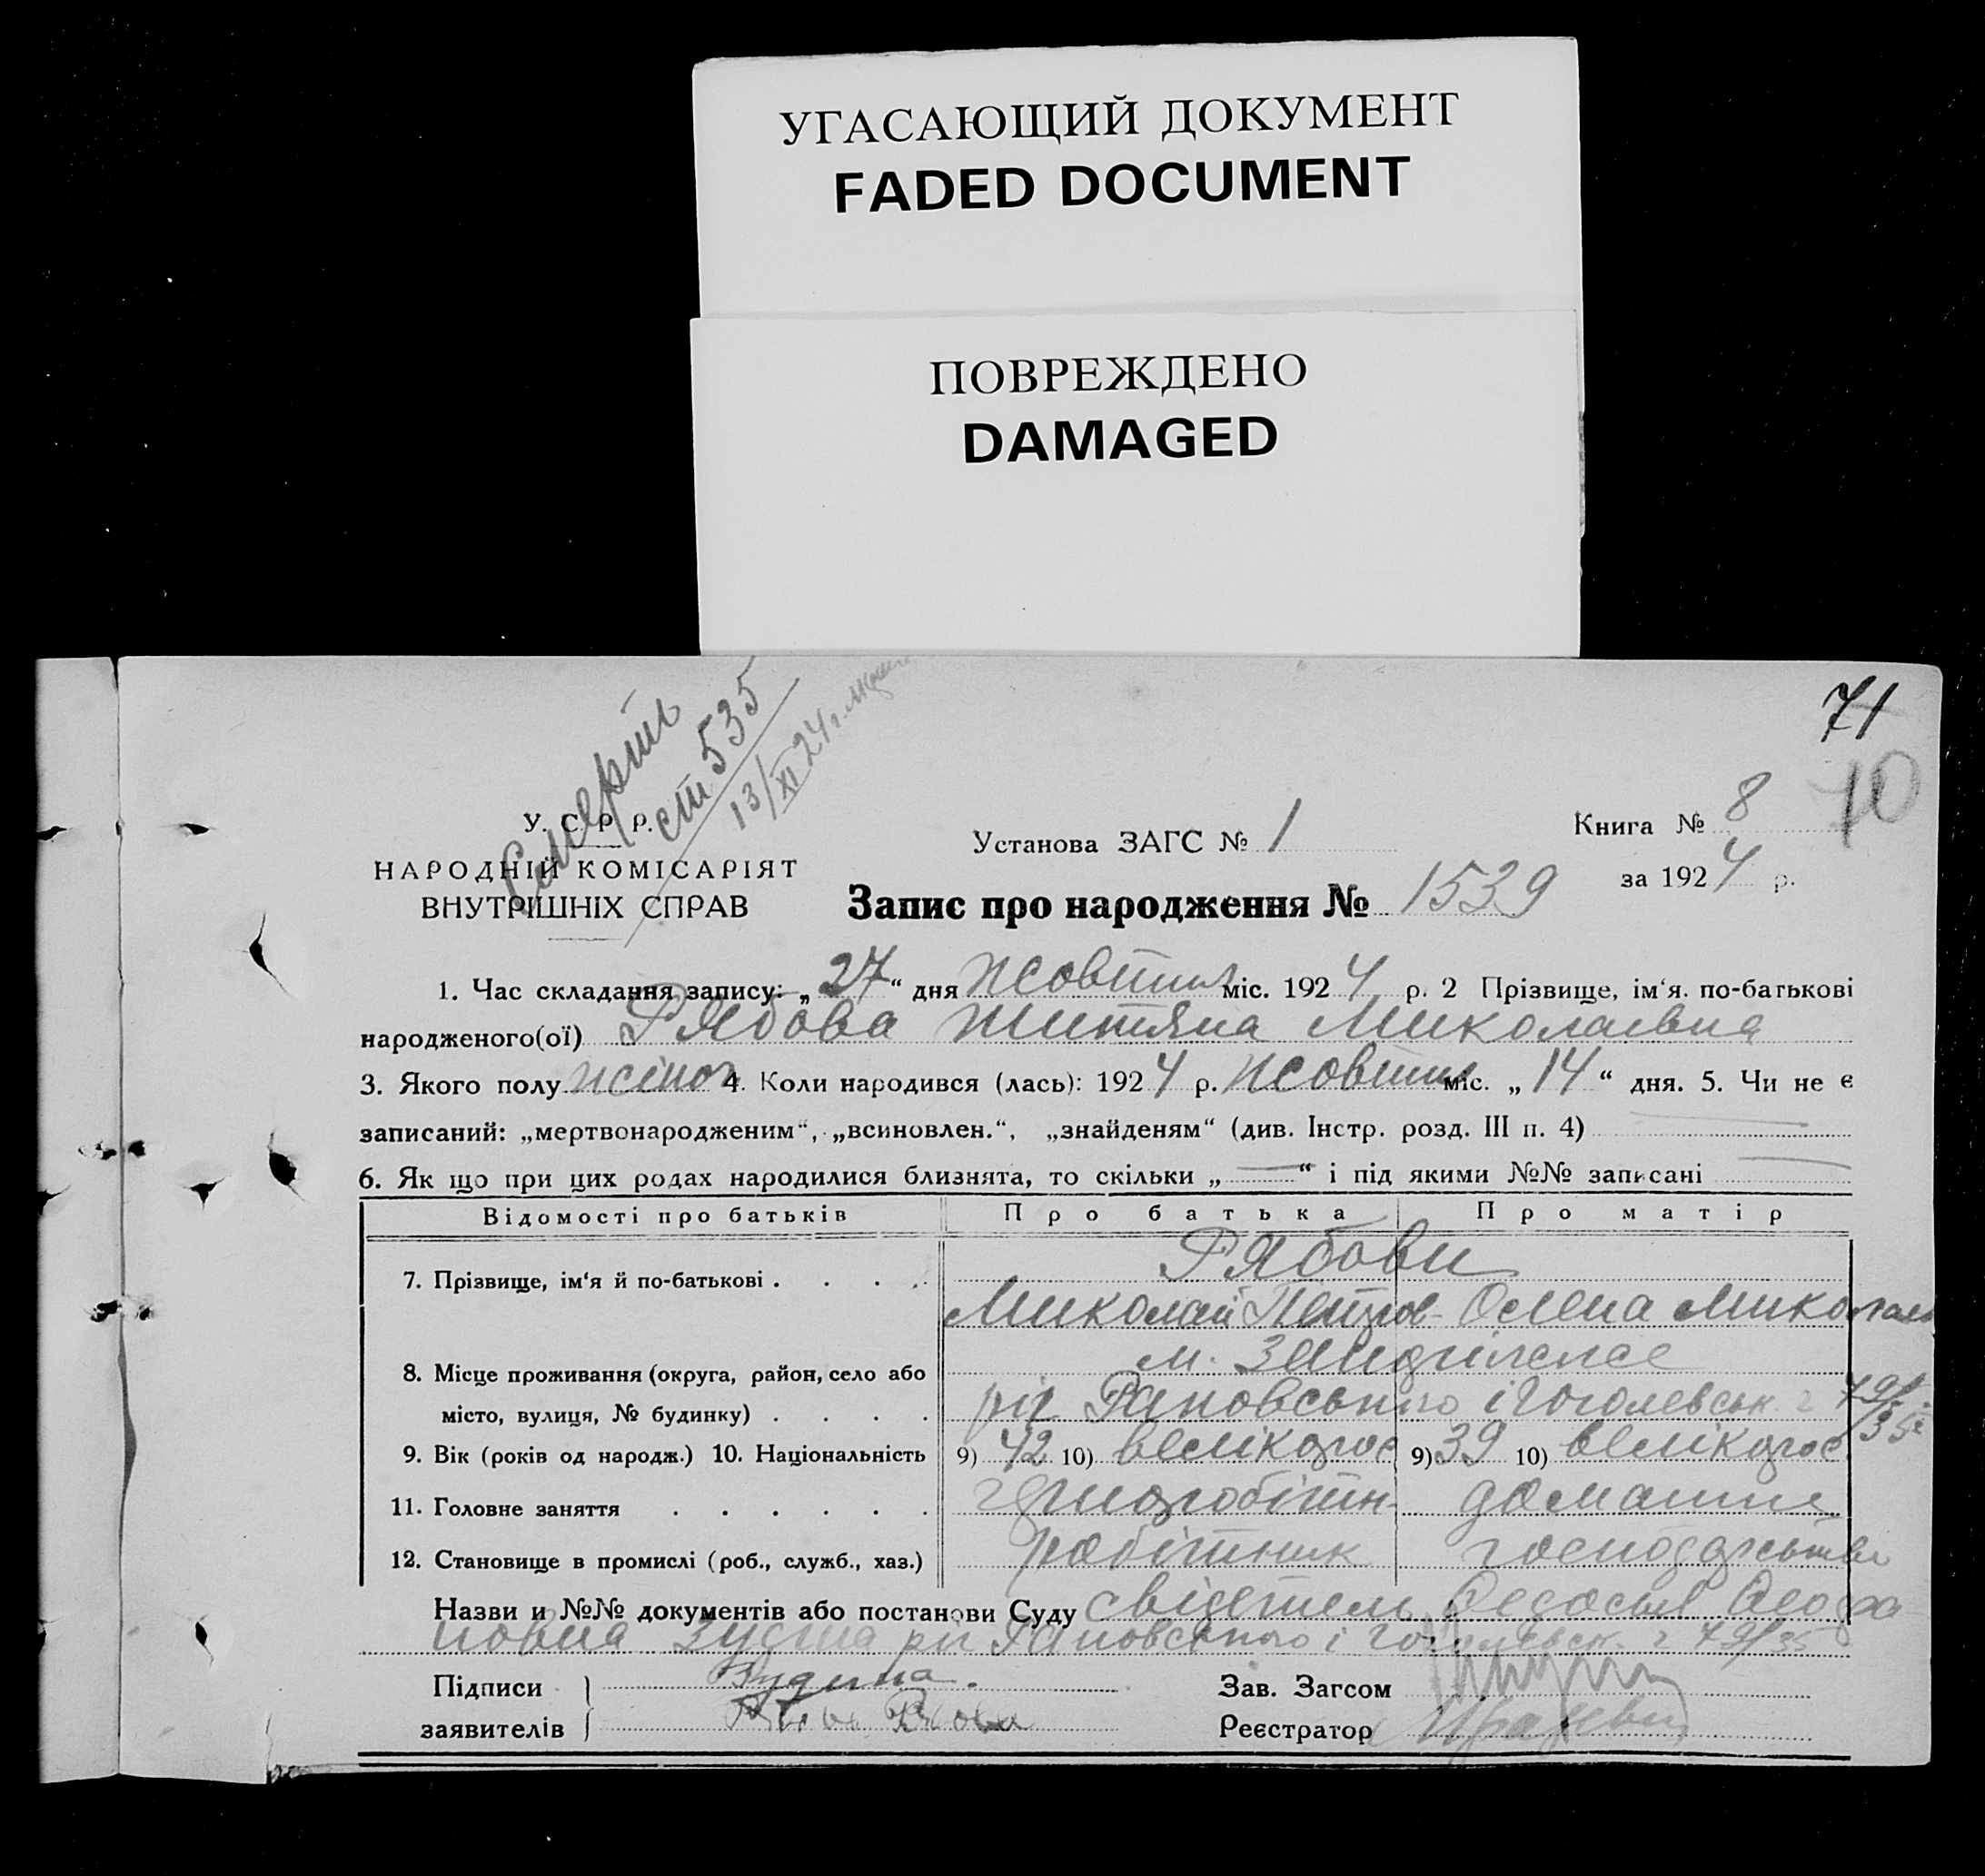 УГАСАЮЩИЙ ДОКУМЕНТ
FADED DOCUMENT
ПОВРЕЖДЕНО
DAMAGED
71
10
Смерть
ст 535
13/XI 24 г.
У. С. Р. Р.
НАРОДНІЙ КОМІСАРІЯТ
ВНУТРІШНІХ СПРАВ
Установа ЗАГС № 1
Книга № 8
за 1924 р.
Запис про народження № 1539
1. Час складання запису: „27“ дня Жовтня міс. 1924 р. 2 Прізвище, ім‘я. по-батькові
народженого(ої) Рябова Миколаевна
3. Якого полу жіноч 4. Коли народився (лась): 1924 р. Жовтня міс. „14“ дня. 5. Чи не є
записаний: „мертвонародженим“, „всиновлен.“, „знайденям“ (див. Інстр. розд. III п. 4)
6. Як що при цих родах народилися близнята, то скільки „—“ і під якими №№ записані —
Відомості про батьків Про батька Про матір
7. Прізвище, ім‘я й по-батькові . . . . Рябови
Миколай Петров- Олена Микола
8. Місце проживання (округа, район, село або м.
місто, вулиця, № будинку) . . . . ріг і Гоголевськ. 79/35
9. Вік (років од народж.) 10. Національність 9) 42 10) великорос 9) 39 10) великорос
11. Головне заняття . . . . . . домашне
12. Становище в промислі (роб., служб., хаз.) робітник господарство
Назви и №№ документів або постанови Суду свідетель Федосья
ріг і 79/35
Підписи
заявителів
Зав. Загсом
Реєстратор